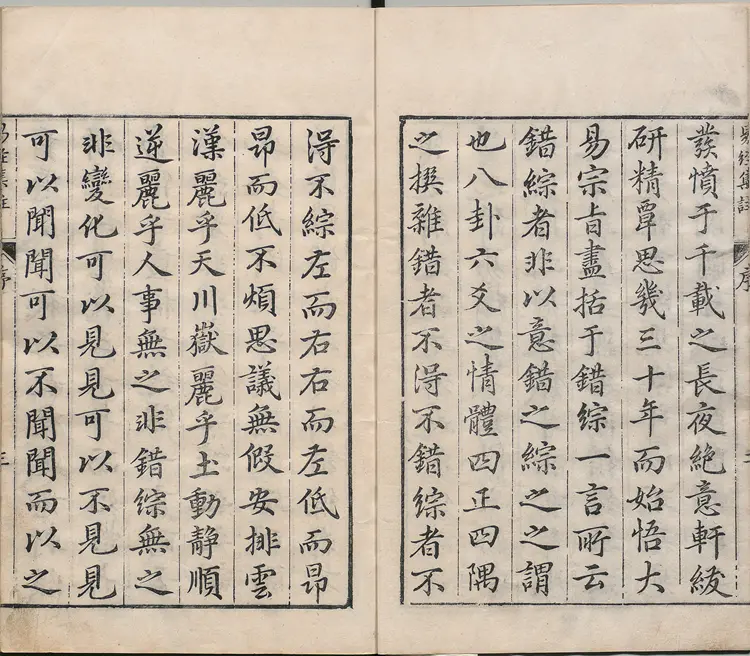 易經集註
序
發憤于千載之長夜絶意軒紱
研精覃思幾三十年而始悟大
易宗旨盡括于錯綜一言所云
錯綜者非以意錯之綜之之謂
也八卦六爻之情體四正四隅
之撰雜錯者不得不錯綜者不
得不綜左而右右而左低而昂
昂而低不煩思議無假安排雲
漢麗乎天川嶽麗乎土動靜順
逆麗乎人事無之非錯綜無之
非變化可以見見可以不見見
可以聞聞可以不聞聞而以之
易經集註
序
三